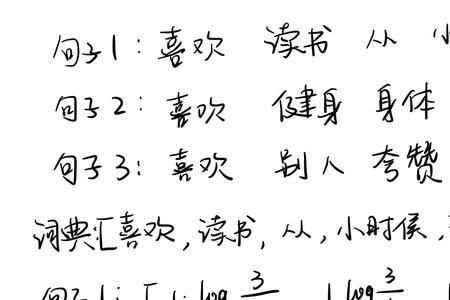 句子1:喜欢 读书 从 小
句子2:喜欢 健身 身体
句子3:喜欢 别人 夸赞
词典汇喜欢,读书,从,小时候,
句子1:[1·log 3